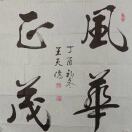 風華
正茂
丁酉初冬
王天德